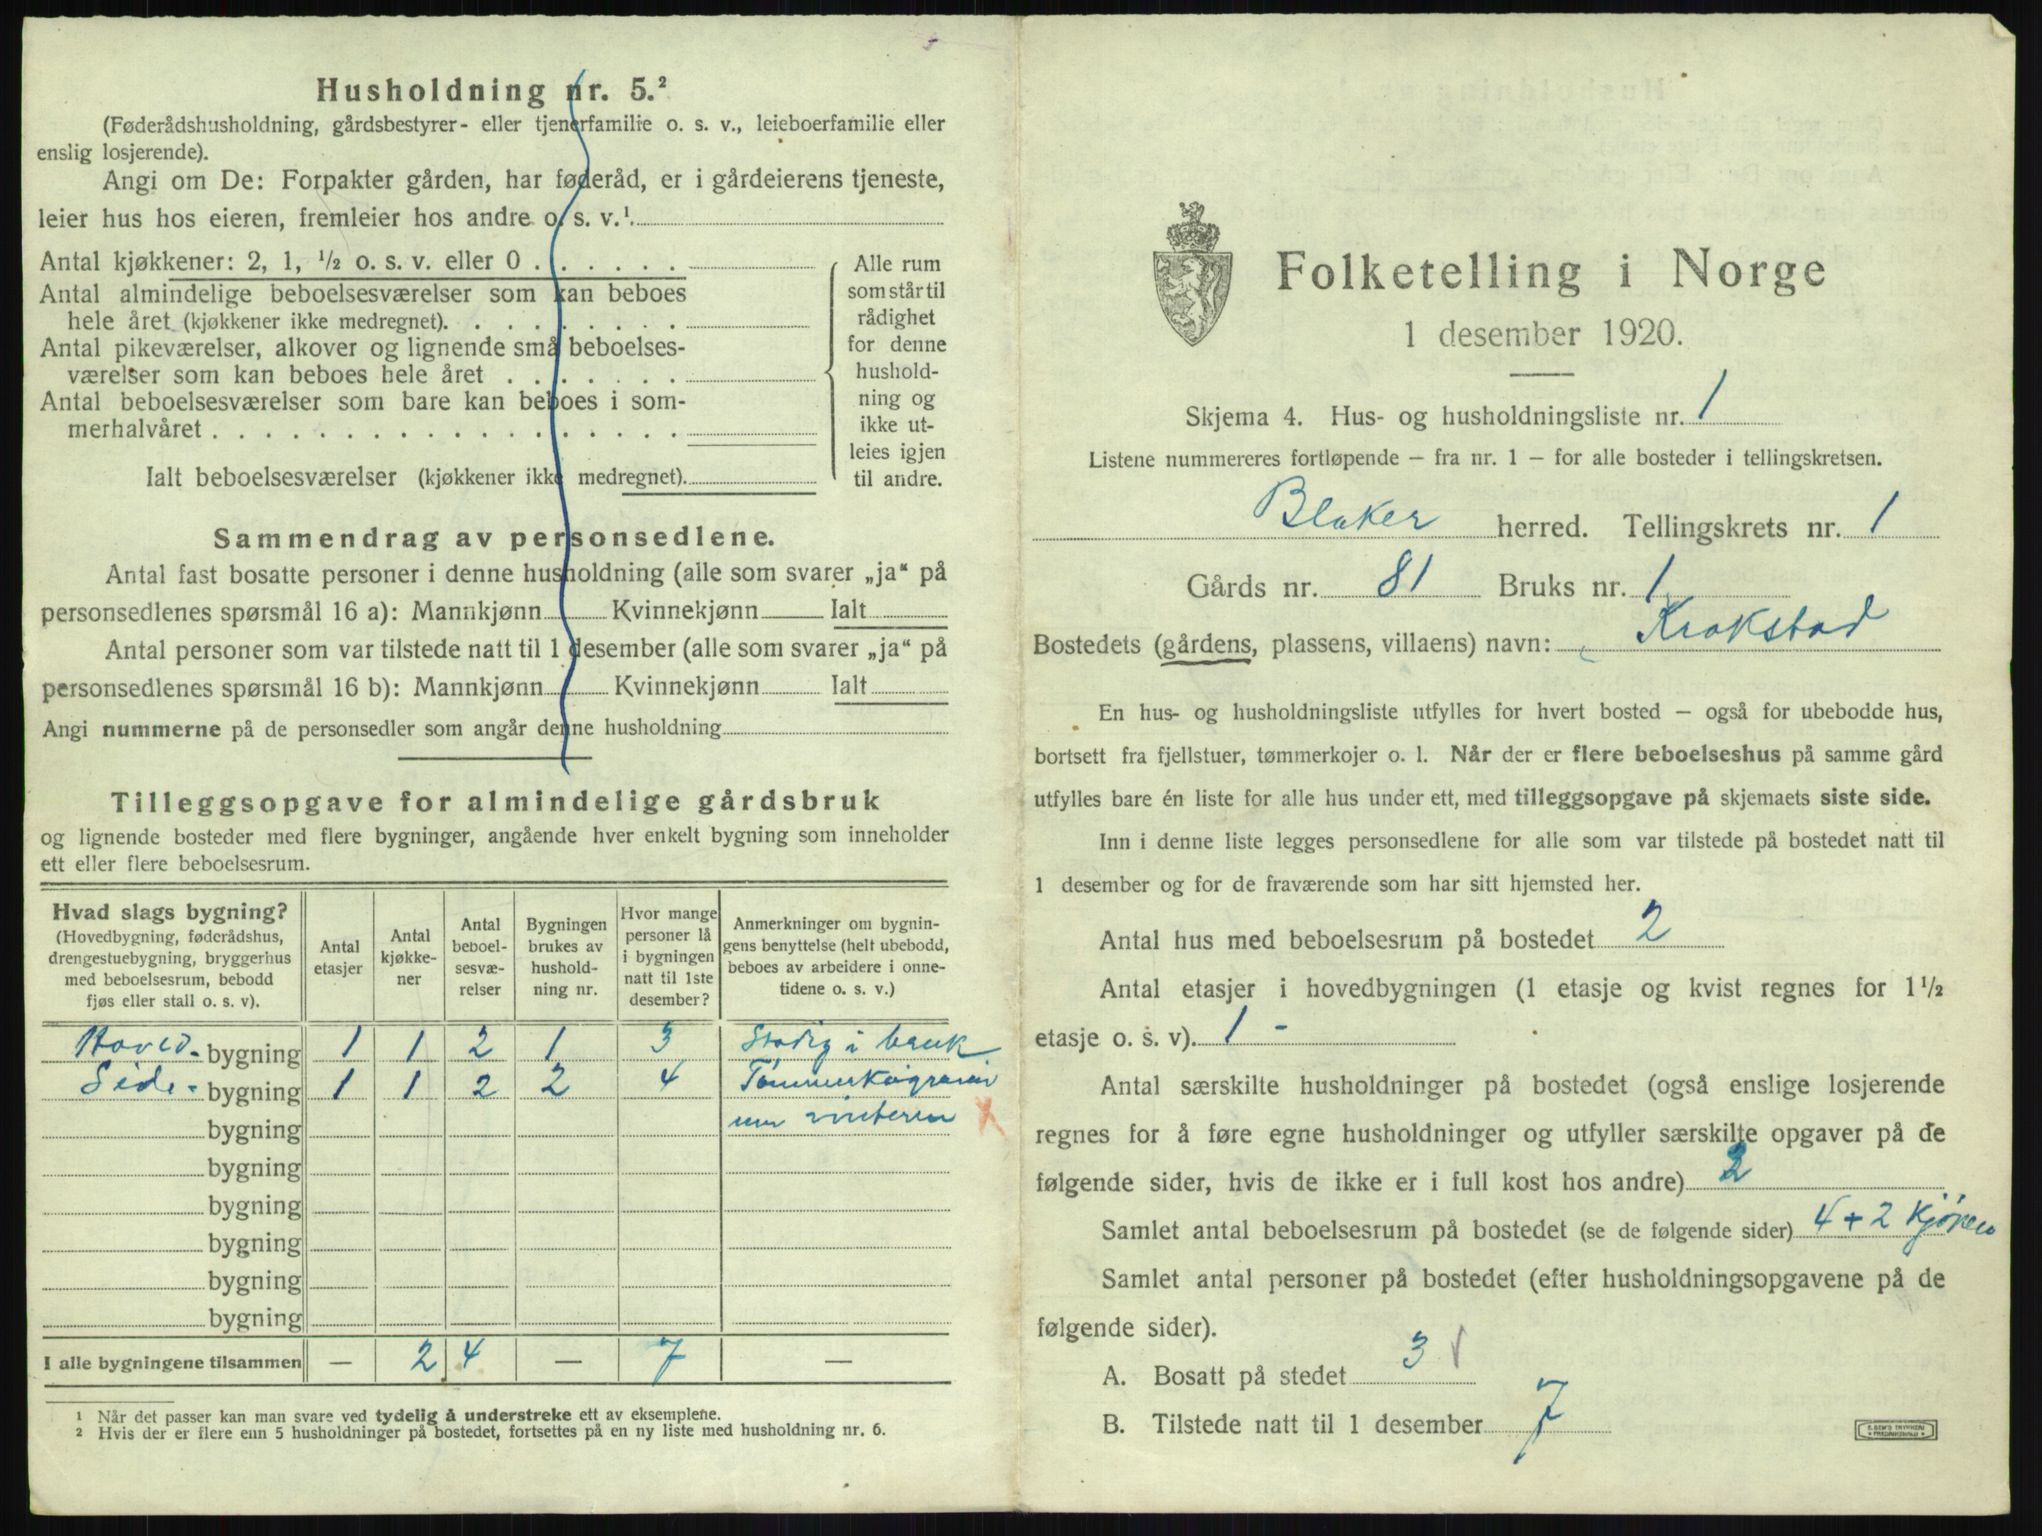 Husholdning nr. 5.²
(Føderådshusholdning, gårdsbestyrer- eller tjenerfamilie o. s. v., leieboerfamilie eller
enslig losjerende).
Angi om De: Forpakter gården, har føderåd, er i gårdeierens tjeneste,
leier hus hos eieren, fremleier hos andre o. s. v.¹
Antal kjøkkener: 2, 1, ½ o. s. v. eller 0 . . . . . .
Antal almindelige beboelsesværelser som kan beboes
hele året (kjøkkener ikke medregnet). . . . . . . . .
Antal pikeværelser, alkover og lignende små beboelses-
værelser som kan beboes hele året . . . . . . .
Antal beboelsesværelser som bare kan beboes i som-
merhalvåret . . . . . . . . . . . . . . . . . .
Ialt beboelsesværelser (kjøkkener ikke medregnet).
Alle rum
som står til
rådighet
for denne
hushold-
ning og
ikke ut-
leies igjen
til andre.
Sammendrag av personsedlene.
Antal fast bosatte personer i denne husholdning (alle som svarer „ja“ på
personsedlenes spørsmål 16 a): Mannkjønn Kvinnekjønn Ialt
Antal personer som var tilstede natt til 1 desember (alle som svarer „ja“ på
personsedlenes spørsmål 16 b): Mannkjønn Kvinnekjønn Ialt
Angi nummerne på de personsedler som angår denne husholdning
Tilleggsopgave for almindelige gårdsbruk
og lignende bosteder med flere bygninger, angående hver enkelt bygning som inneholder
ett eller flere beboelsesrum.
Hvad slags bygning?
(Hovedbygning, føderådshus,
drengestuebygning, bryggerhus
med beboelsesrum, bebodd
fjøs eller stall o. s. v).
Antal
etasjer
Antal
kjøkke-
ner
Antal
beboel-
sesvæ-
relser
Bygningen
brukes av
hushold-
ning nr.
Hvor mange
personer lå
i bygningen
natt til 1ste
desember?
Anmerkninger om bygnin-
gens benyttelse (helt ubebodd,
beboes av arbeidere i onne-
tidene o. s. v.)
Hoved- bygning 1 1 2 1 3 Stadig i bruk
Side- bygning 1 1 2 2 4
bygning vinteren X
bygning
bygning
bygning
bygning
bygning
I alle bygningene tilsammen — 2 4 — 7 —
¹ Når det passer kan man svare ved tydelig å understreke ett av eksemplene.
² Hvis der er flere enn 5 husholdninger på bostedet, fortsettes på en ny liste med husholdning nr. 6.
Folketelling i Norge
1 desember 1920.
Skjema 4. Hus- og husholdningsliste nr. 1
Listene nummereres fortløpende — fra nr. 1 — for alle bosteder i tellingskretsen.
Blaker herred. Tellingskrets nr. 1
Gårds nr. 81 Bruks nr. 1
Bostedets (gårdens, plassens, villaens) navn: Krokstad
En hus- og husholdningsliste utfylles for hvert bosted — også for ubebodde hus,
bortsett fra fjellstuer, tømmerkojer o. l. Når der er flere beboelseshus på samme gård
utfylles bare én liste for alle hus under ett, med tilleggsopgave på skjemaets siste side.
Inn i denne liste legges personsedlene for alle som var tilstede på bostedet natt til
1 desember og for de fraværende som har sitt hjemsted her.
Antal hus med beboelsesrum på bostedet 2
Antal etasjer i hovedbygningen (1 etasje og kvist regnes for 1½
etasje o. s. v). 1 -
Antal særskilte husholdninger på bostedet (også enslige losjerende
regnes for å føre egne husholdninger og utfyller særskilte opgaver på de
følgende sider, hvis de ikke er i full kost hos andre) 2
Samlet antal beboelsesrum på bostedet (se de følgende sider) 4 + 2 Kjøken
Samlet antal personer på bostedet (efter husholdningsopgavene på de
følgende sider).
A. Bosatt på stedet 3
B. Tilstede natt til 1 desember 7